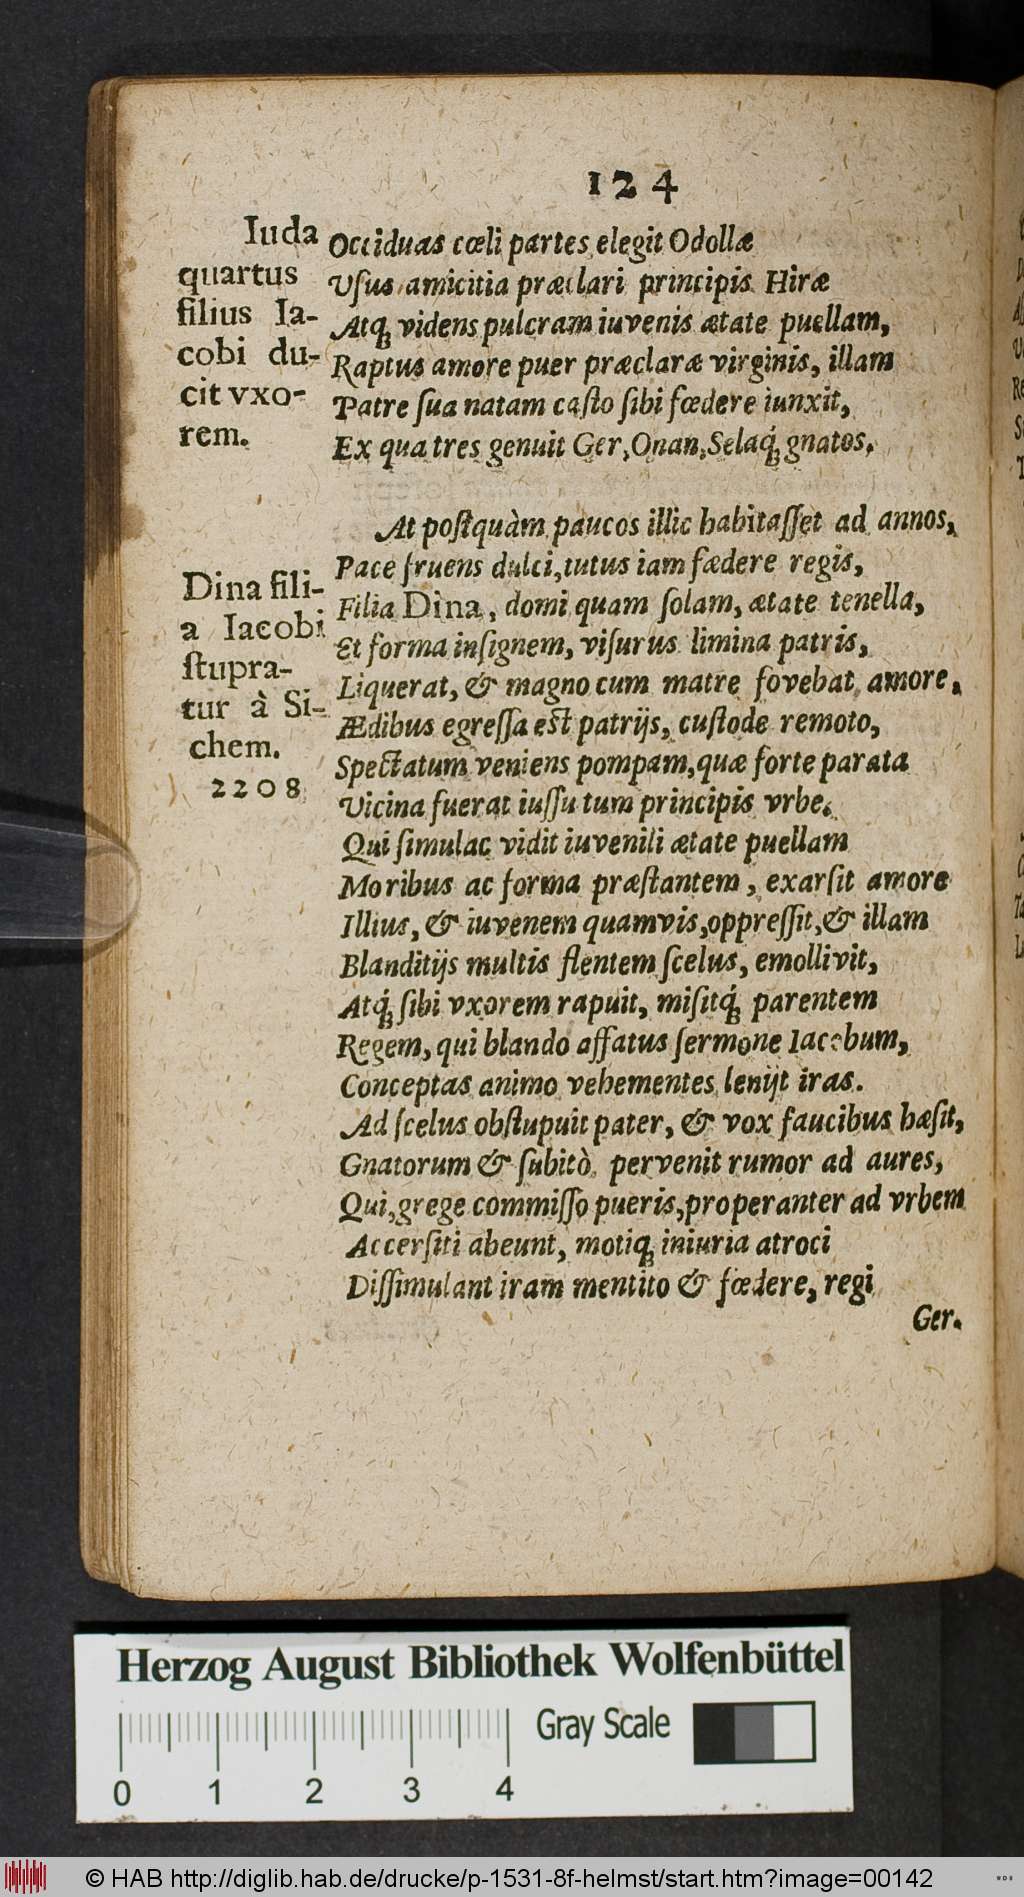 124
Iuda
quartus
filius Ia-
cobi du-
cit vxo-
rem.
Occiduas cœli partes elegit Odollæ
Vſus amicitia præclari principis Hiræ
Atq́ꝫ videns pulcram iuvenis ætate puellam,
Raptus amore puer præclaræ virginis, illam
Patre ſua natam caſto ſibi fœdere iunxit,
Ex qua tres genuit Ger, Onan, Selaq́ꝫ gnatos.
At poſtquàm paucos illic habitaſſet ad annos,
Pace fruens dulci, tutus iam fædere regis,
Dina fili-
a Iacobi
ſtupra-
tur à Si-
chem.
2208
Filia Dina, domi quam ſolam, ætate tenella,
Et forma inſignem, viſurus limina patris,
Liquerat, & magno cum matre fovebat amore,
Ædibus egreſſa eſt patrijs, cuſtode remoto,
Spectatum veniens pompam, quæ forte parata
Vicina fuerat iuſſu tum principis vrbe.
Qui ſimulac vidit iuvenili ætate puellam
Moribus ac forma præſtantem, exarſit amore
Illius, & iuvenem quamvis, oppreſſit, & illam
Blanditijs multis flentem ſcelus, emollivit,
Atq́ꝫ ſibi vxorem rapuit, miſitq́ꝫ parentem
Regem, qui blando affatus ſermone Iacobum,
Conceptas animo vehementes lenijt iras.
Ad ſcelus obſtupuit pater, & vox faucibus hæſit,
Gnatorum & ſubitò pervenit rumor ad aures,
Qui, grege commiſſo pueris, properanter ad vrbem
Accerſiti abeunt, motiq́ꝫ iniuria atroci
Diſſimulant iram mentito & fœdere, regi
Ger.
Herzog August Bibliothek Wolfenbüttel
Gray Scale
0 1 2 3 4
© HAB http://diglib.hab.de/drucke/p-1531-8f-helmst/start.htm?image=00142